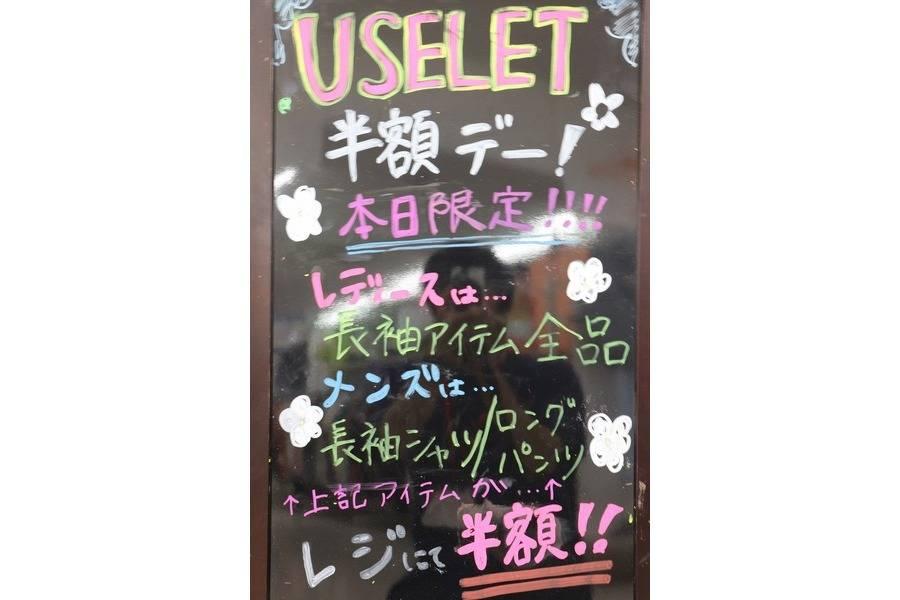 USELET
半額デー!
本日限定!!!!
レディースは…
長袖アイテム全品
メンズは…
長袖シャツ/ロングパンツ
↑上記アイテムが…↑
レジにて半額!!